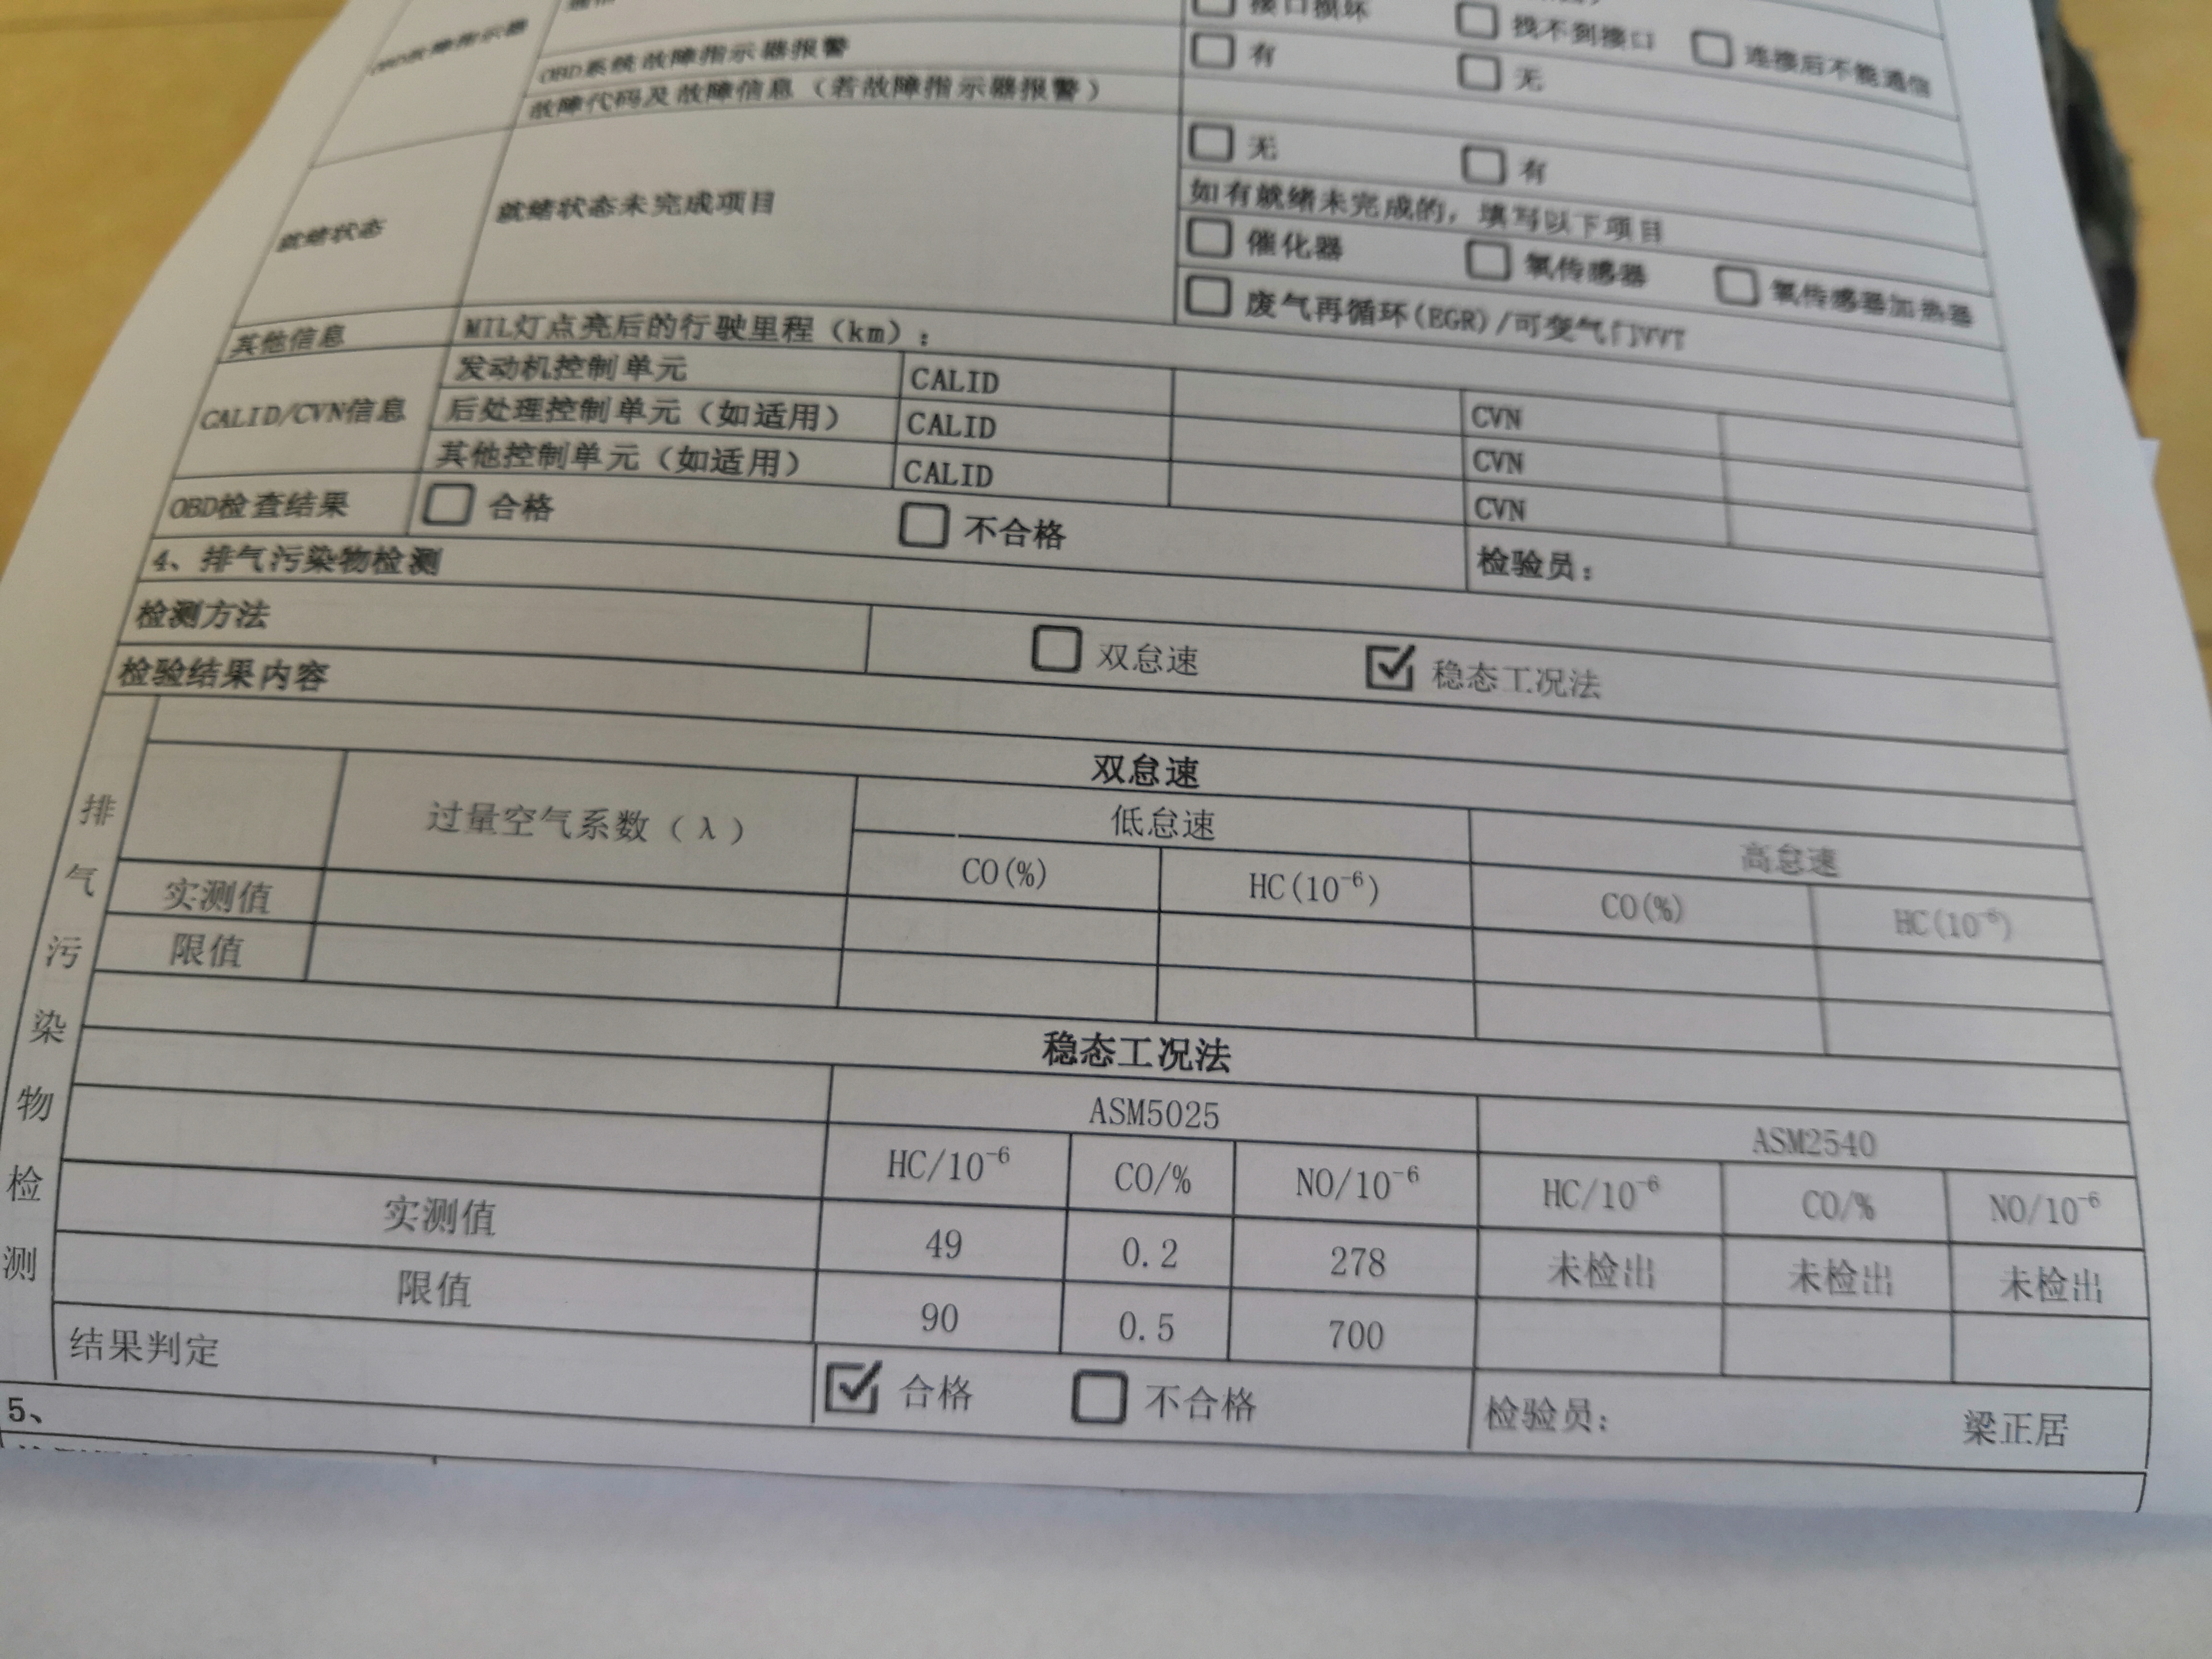 接口损坏 找不到接口 连接后不能通信
OBD故障指示器
OBD系统故障指示器报警 有 无
故障代码及故障信息（若故障指示器报警）
就绪状态 就绪状态未完成项目 无 有
如有就绪未完成的，填写以下项目
催化器 氧传感器 氧传感器加热器
废气再循环(EGR)/可变气门VVT
其他信息 MIL灯点亮后的行驶里程（km）：
CALID/CVN信息 发动机控制单元 CALID CVN
后处理控制单元（如适用） CALID CVN
其他控制单元（如适用） CALID CVN
OBD检查结果 合格 不合格 检验员：
4、排气污染物检测
检测方法 双怠速 稳态工况法
检验结果内容
排气污染物检测
双怠速
过量空气系数（λ） 低怠速 高怠速
CO(%) HC(10⁻⁶) CO(%) HC(10⁻⁶)
实测值
限值
稳态工况法
ASM5025 ASM2540
HC/10⁻⁶ CO/% NO/10⁻⁶ HC/10⁻⁶ CO/% NO/10⁻⁶
实测值 49 0.2 278 未检出 未检出 未检出
限值 90 0.5 700
结果判定 合格 不合格 检验员： 梁正居
5、